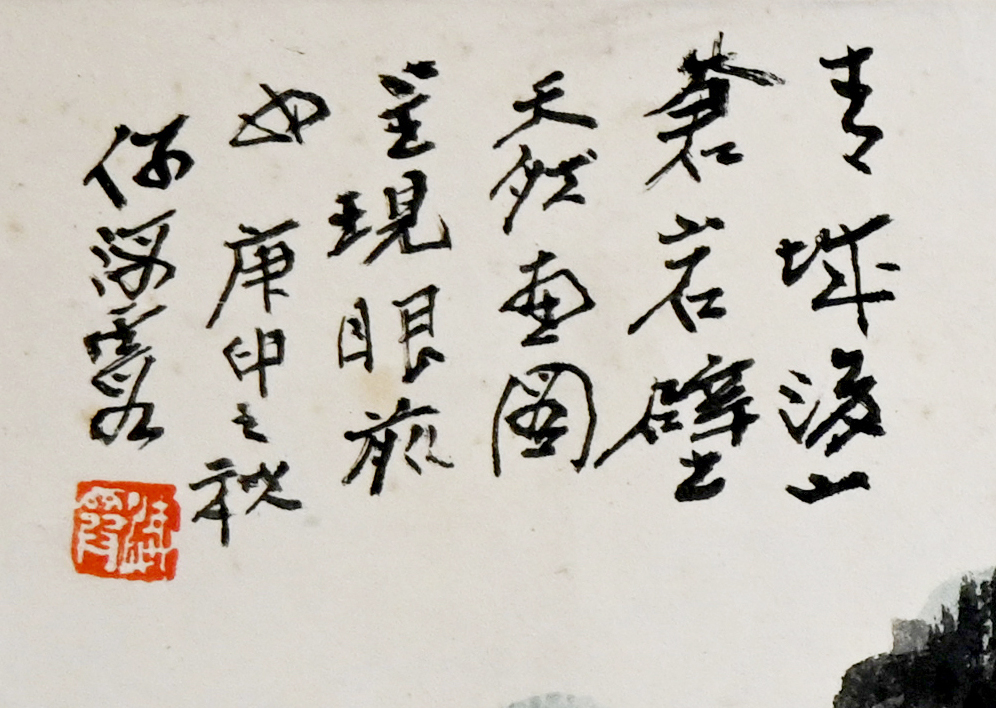 青城後山
蒼岩壁
天然畫圖
呈現眼前
也庚申之秋